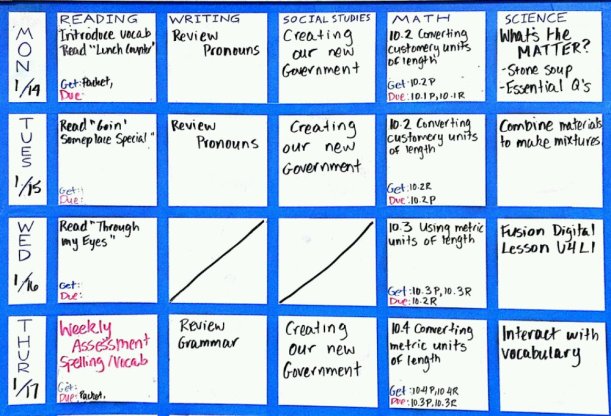 READING
WRITING
SOCIAL STUDIES
MATH
SCIENCE
MON
1/14
Introduce vocab
Read "Lunch Counter"
Get: Packet,
Due:
Review
Pronouns
Creating
our new
Government
10.2 Converting
customery units
of length
Get: 10.2P
Due: 10.1P, 10.1R
What's the
MATTER?
- Stone soup
- Essential Q's
TUES
1/15
Read "Goin'
Someplace Special"
Get:
Due:
Review
Pronouns
Creating
our new
Government
10.2 Converting
customery units
of length
Get: 10.2R
Due: 10.2P
Combine materials
to make mixtures.
WED
1/16
Read "Through
my Eyes"
Get:
Due:
10.3 Using metric
units of length
Get: 10.3P, 10.3R
Due: 10.2R
Fusion Digital
Lesson U4L1
THUR
1/17
Weekly
Assessment
Spelling/Vocab
Get:
Due: Packet,
Review
Grammar
Creating
our new
Government
10.4 Converting
metric units
of length
Get: 10.4P, 10.4R
Due: 10.3P, 10.3R
Interact with
vocabulary